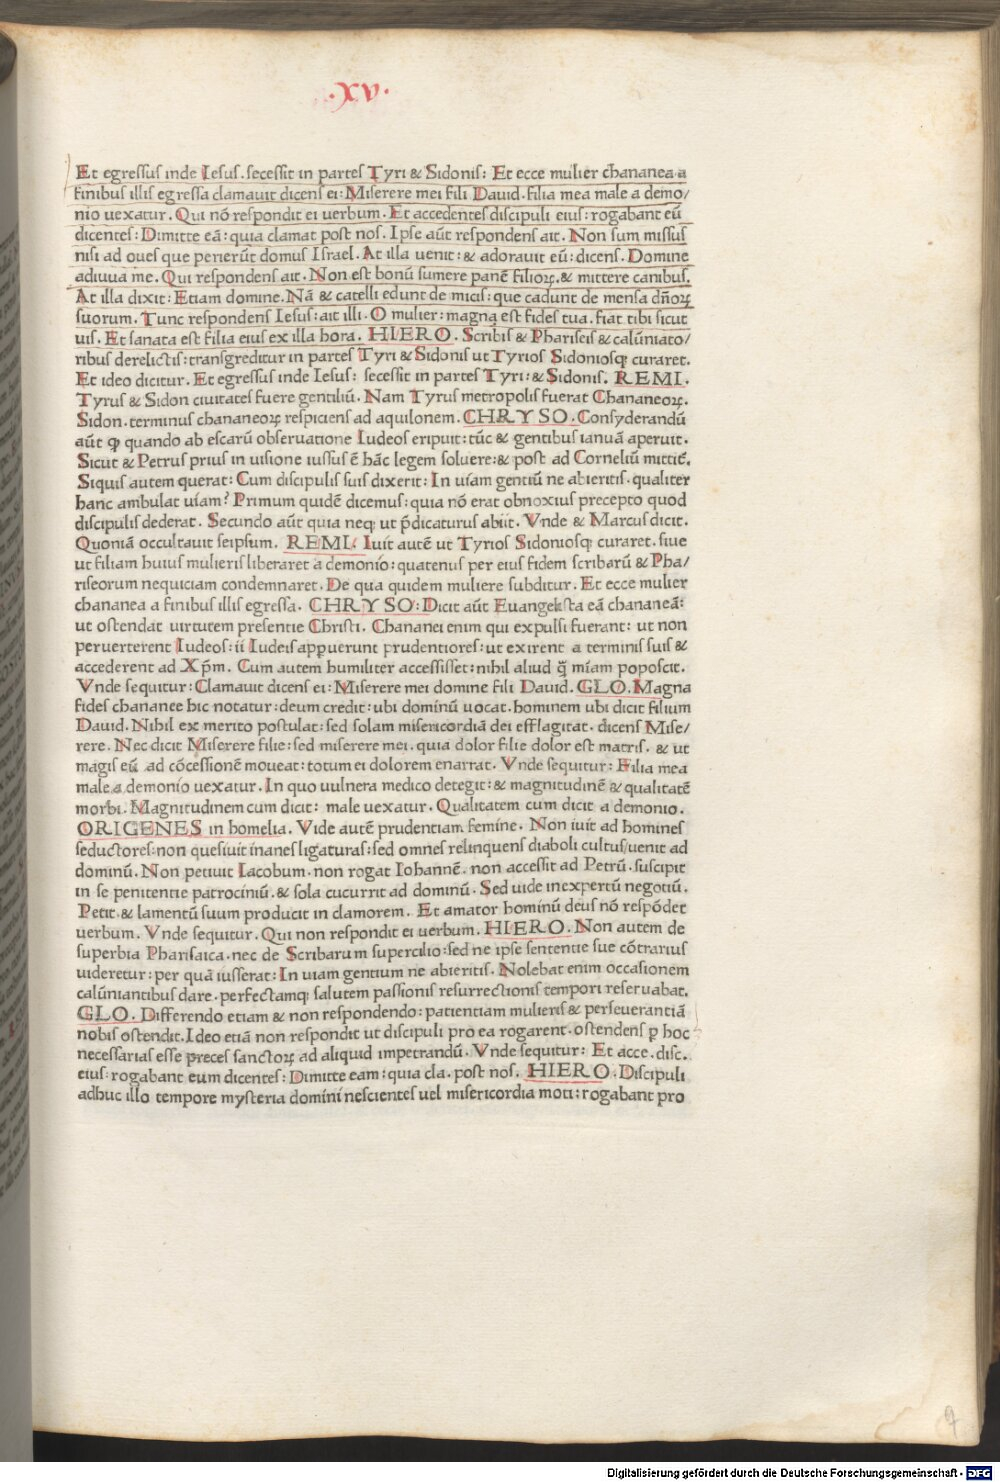 .XV.
Et egressus inde Iesus. secessit in partes Tyri & Sidonis: Et ecce mulier chananea a
finibus illis egressa clamauit dicens ei: Miserere mei fili Dauid. filia mea male a demo/
nio uexatur. Qui nō respondit ei uerbum. Et accedentes discipuli eius: rogabant eū
dicentes: Dimitte eā: quia clamat post nos. Ipse aūt respondens ait. Non sum missus
nisi ad oues que perierūt domus Israel. At illa uenit: & adorauit eū: dicens. Domine
adiuua me. Qui respondens ait. Non est bonū sumere panē filioꝝ. & mittere canibus.
At illa dixit: Etiam domine. Nā & catelli edunt de micis: que cadunt de mensa dn̄oꝝ
suorum. Tunc respondens Iesus: ait illi. O mulier: magna est fides tua. fiat tibi sicut
uis. Et sanata est filia eius ex illa hora. HIERO. Scribis & Phariseis & calūniato/
ribus derelictis: transgreditur in partes Tyri & Sidonis ut Tyrios Sidoniosq; curaret.
Et ideo dicitur. Et egressus inde Iesus: secessit in partes Tyri: & Sidonis. REMI.
Tyrus & Sidon ciuitates fuere gentiliū. Nam Tyrus metropolis fuerat Chananeoꝝ.
Sidon. terminus chananeoꝝ respiciens ad aquilonem. CHRYSO. Consyderandū
aūt ꝙ quando ab escarū obseruatione Iudeos eripuit: tūc & gentibus ianuā aperuit.
Sicut & Petrus prius in uisione iussus ē hāc legem soluere: & post ad Corneliū mittit᷑.
Siquis autem querat: Cum discipulis suis dixerit: In uiam gentiū ne abieritis. qualiter
hanc ambulat uiam? Primum quidē dicemus: quia nō erat obnoxius precepto quod
discipulis dederat. Secundo aūt quia neq; ut p̄dicaturus abiit. Vnde & Marcus dicit.
Quoniā occultauit seipsum. REMI. Iuit autē ut Tyrios Sidoniosq; curaret. siue
ut filiam huius mulieris liberaret a demonio: quatenus per eius fidem scribarū & Pha/
riseorum nequiciam condemnaret. De qua quidem muliere subditur. Et ecce mulier
chananea a finibus illis egressa. CHRYSO: Dicit aūt Euangelista eā chananeā:
ut ostendat uirtutem presentie Christi. Chananei enim qui expulsi fuerant: ut non
peruerterent Iudeos: ii Iudeis apparuerunt prudentiores: ut exirent a terminis suis &
accederent ad Xp̄m. Cum autem humiliter accessisset: nihil aliud q̄ miam poposcit.
Vnde sequitur: Clamauit dicens ei: Miserere mei domine fili Dauid. GLO. Magna
fides chananee hic notatur: deum credit: ubi dominū uocat. hominem ubi dicit filium
Dauid. Nihil ex merito postulat: sed solam misericordiā dei efflagitat. dicens Mise/
rere. Nec dicit Miserere filie: sed miserere mei. quia dolor filie dolor est matris. & ut
magis eū ad cōcessionē moueat: totum ei dolorem enarrat. Vnde sequitur: Filia mea
male a demonio uexatur. In quo uulnera medico detegit: & magnitudinē & qualitatē
morbi. Magnitudinem cum dicit: male uexatur. Qualitatem cum dicit a demonio.
ORIGENES in homelia. Vide autē prudentiam femine. Non iuit ad homines
seductores: non quesiuit inanes ligaturas: sed omnes relinquens diaboli cultus, uenit ad
dominū. Non petiuit Iacobum. non rogat Iohannē. non accessit ad Petrū. suscipit
in se penitentie patrociniū. & sola cucurrit ad dominū. Sed uide inexpertū negotiū.
Petit. & lamentū suum producit in clamorem. Et amator hominū deus nō respōdet
uerbum. Vnde sequitur. Qui non respondit ei uerbum. HIERO. Non autem de
superbia Pharisaica. nec de Scribarum supercilio: sed ne ipse sententie sue cōtrarius
uideretur: per quā iusserat: In uiam gentium ne abieritis. Nolebat enim occasionem
calūniantibus dare. perfectamq; salutem passionis resurrectionis tempori reseruabat.
GLO. Differendo etiam & non respondendo: patientiam mulieris & perseuerantiā
nobis ostendit. Ideo etiā non respondit ut discipuli pro ea rogarent. ostendens ꝑ hoc
necessarias esse preces sanctoꝝ ad aliquid impetrandū. Vnde sequitur: Et acce. disc.
eius: rogabant eum dicentes: Dimitte eam: quia cla. post nos. HIERO. Discipuli
adhuc illo tempore mysteria domini nescientes uel misericordia moti: rogabant pro
9
Digitalisierung gefördert durch die Deutsche Forschungsgemeinschaft - DFG